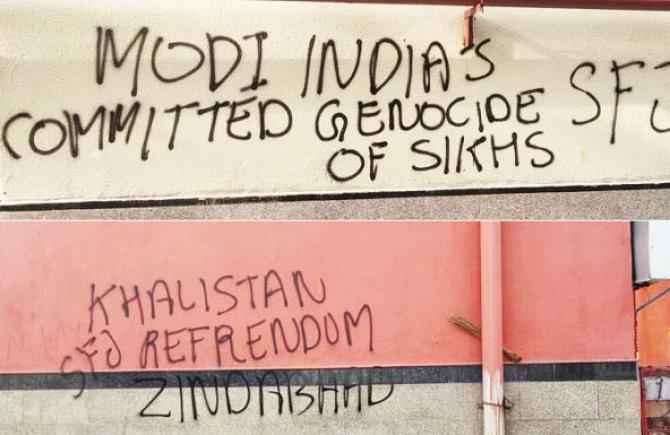 MODI INDIA'S
COMMITTED GENOCIDE SFJ
OF SIKHS
KHALISTAN
SFJ REFRENDUM
ZINDABAAD